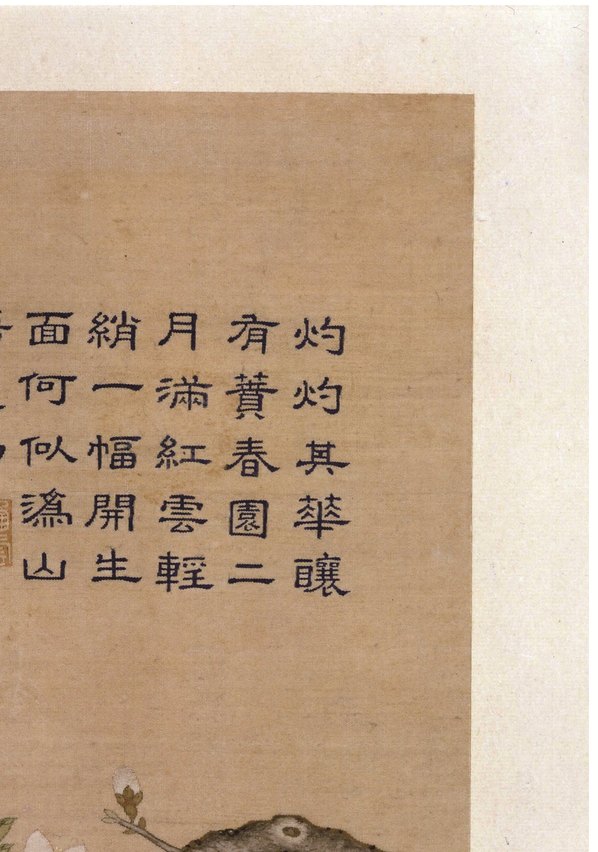 灼灼其華釀
有蕡春園二
月滿紅雲輕
綃一幅開生
面何似潙山